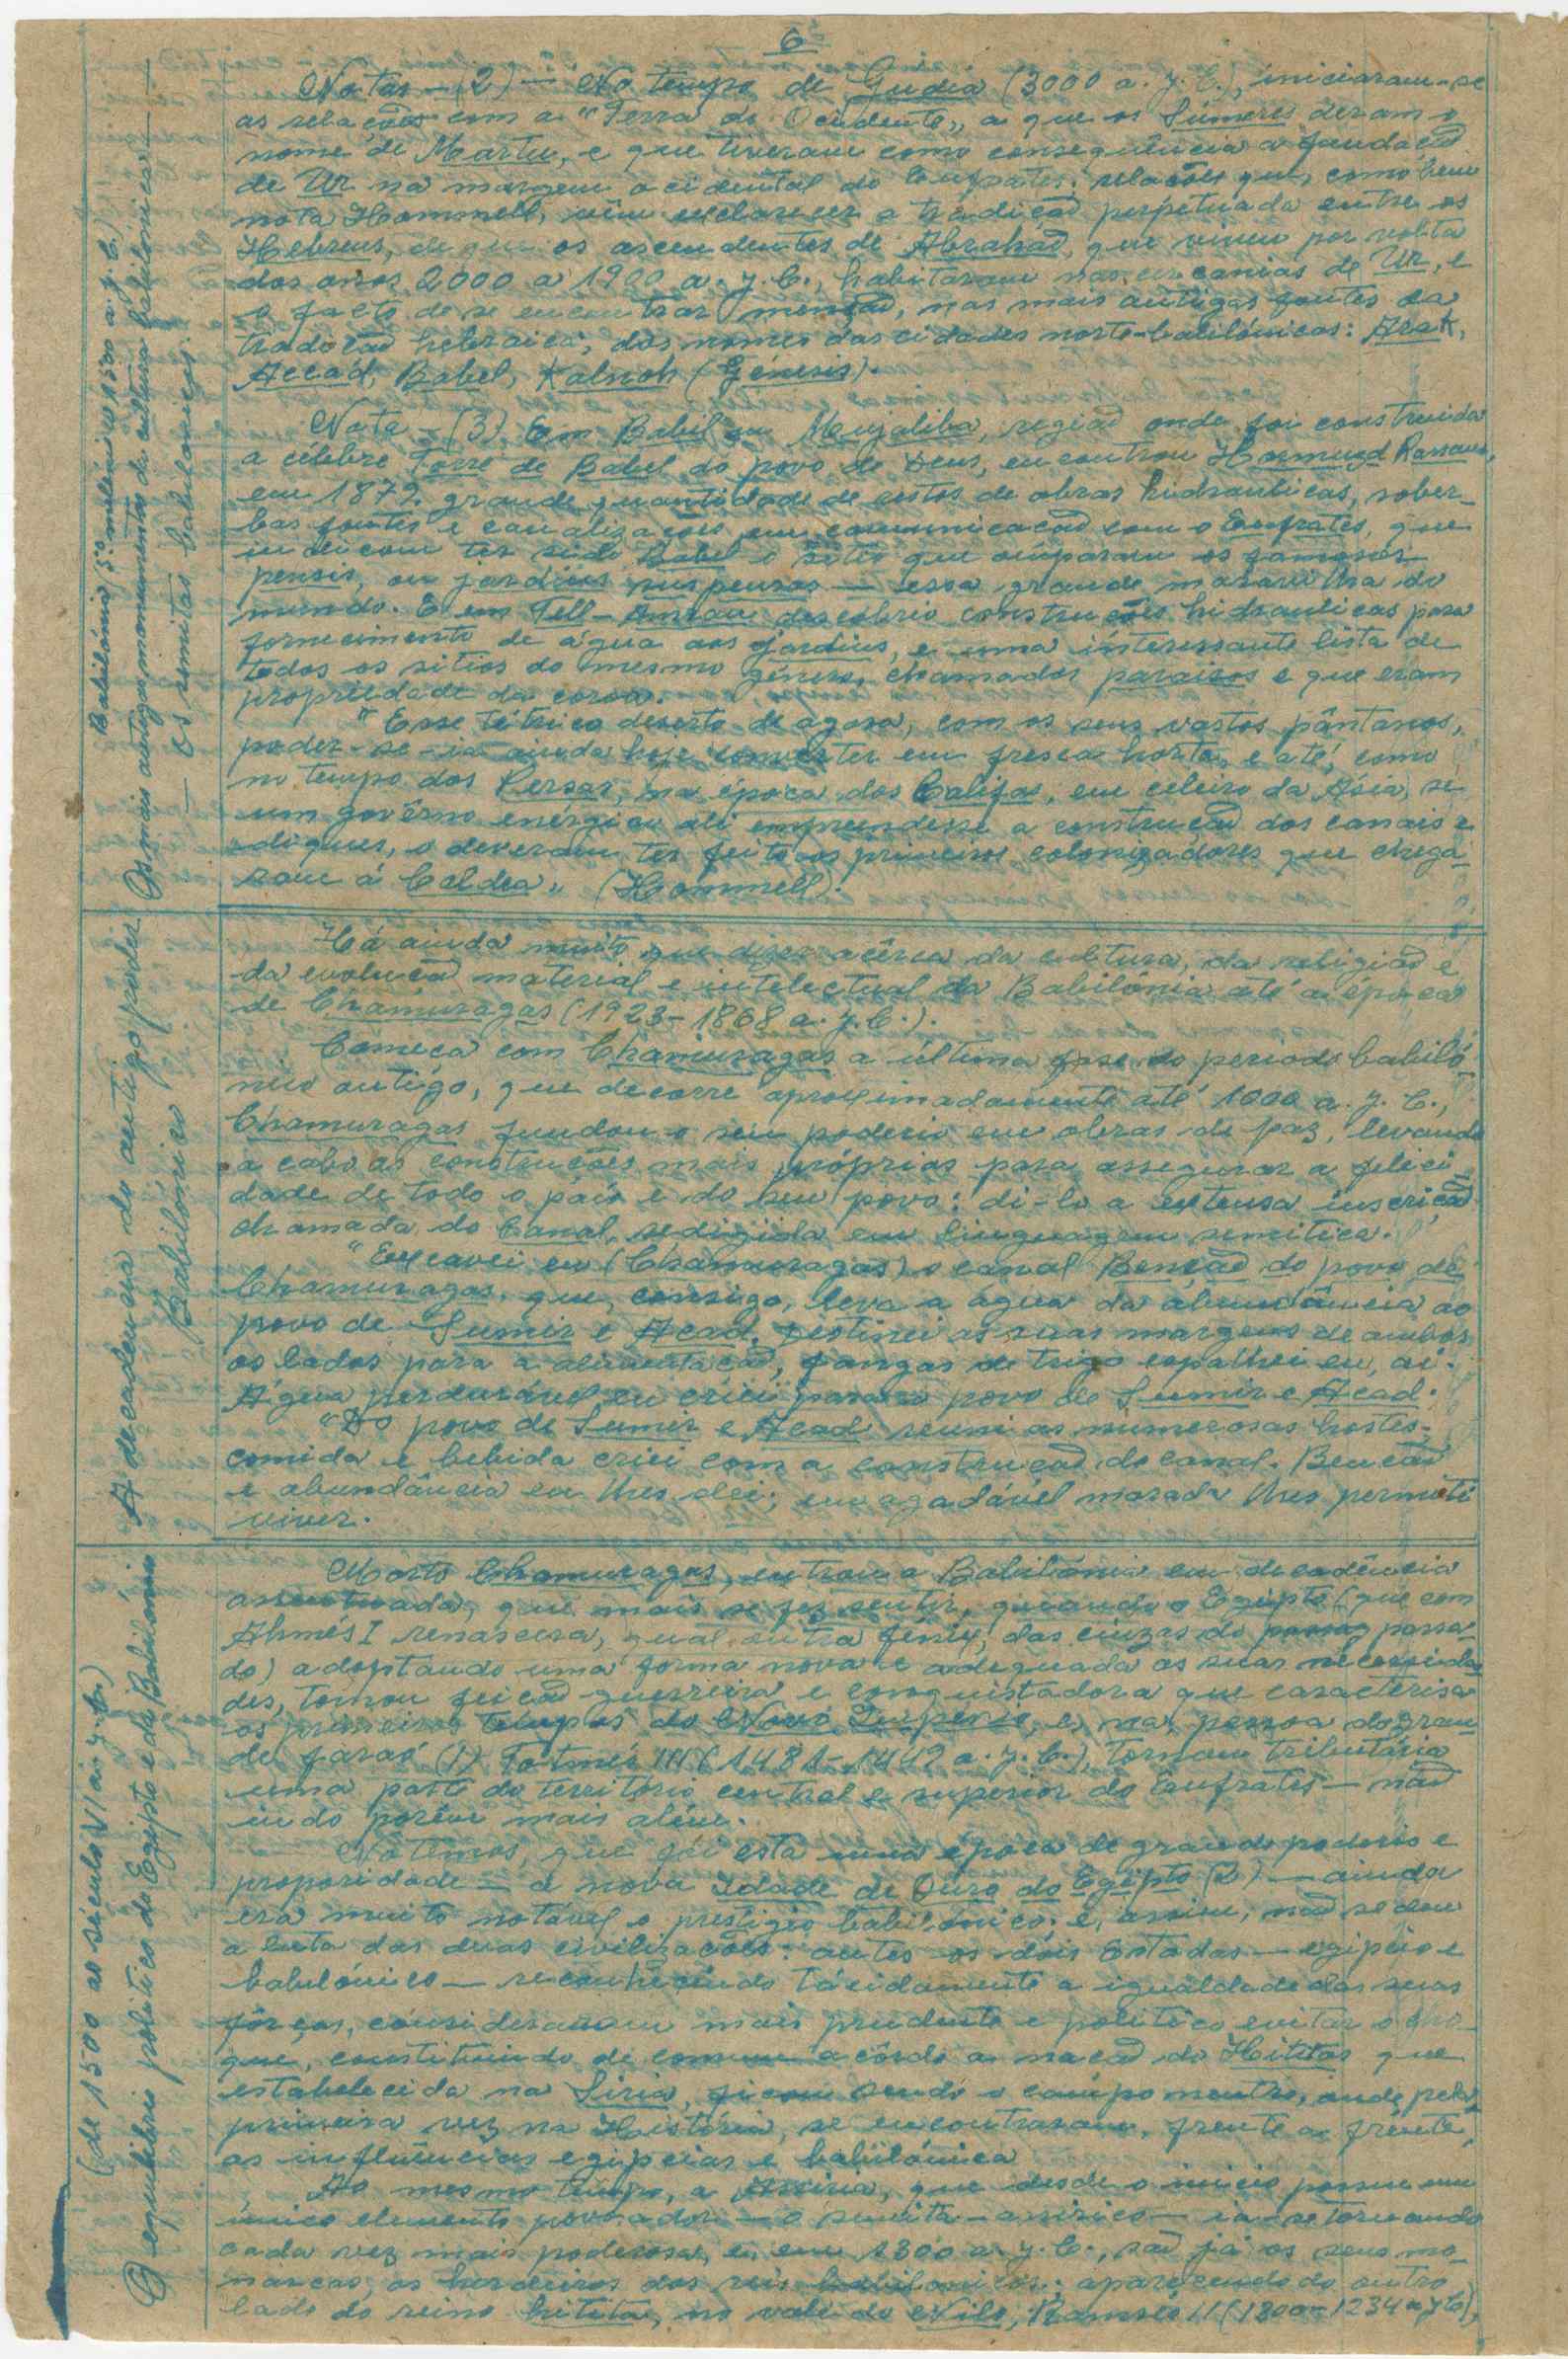 6
Notas - (2) - No tempo de Gudea (3000 a. J. C.), iniciaram-se
as relações com a "Terra do Ocidente", a que os Súmeres deram o
nome de Martu, e que tiveram como consequência a fundação
de Ur na margem ocidental do Eufrates; relações que, como bem
nota Hommell, vêm esclarecer a tradição perpetuada entre os
Hebreus, de que os ascendentes de Abrahão, que viveu por volta
dos anos 2000 a 1900 a. J. C., habitaram nas cercanias de Ur, e
o facto de se encontrar menção, nas mais antigas fontes da
tradição hebraica, dos nomes das cidades norte-babilónicas: Arak,
Accad, Babel, Kalnoh (Génesis).
Nota - (3) Em Babil ou Mujaliba, região onde foi construida
a célebre Torre de Babel do povo de Deus, encontrou Hormuzd Rassam,
em 1879, grande quantidade de restos de obras hidraulicas, sober-
bas fontes e canalizações em comunicação com o Eufrates, que
indicam ter sido Babel o sitio que ocuparam os famosos
pensis, ou jardins suspensos - essa grande maravilha do
mundo. E em Tell-Amran descobriu construções hidraulicas para
fornecimento de água aos jardins, e uma interessante lista de
todos os sitios do mesmo género, chamados paraisos e que eram
propriedade da coroa.
"Esse tétrico deserto de agora, com os seus vastos pântanos,
poder-se-ia ainda hoje converter em fresca horta, e até, como
no tempo dos Persas, na época dos Califas, em celeiro da Ásia, se
um govêrno enérgico ali empreendesse a construção dos canais e
diques, o deveram ter feito os primeiros colonizadores que chega-
ram á Caldea" (Hommell).
Babilónia (5º milénio a 1500 a. J. C.)
Os mais antigos monumentos da cultura babilónica -
- os semitas babilónicos.
Há ainda muito que dizer acêrca da cultura, da religião e
da evolução material e intelectual da Babilónia até a época
de Chamuragas (1923-1868 a. J. C.).
Começa com Chamuragas a última fase do periodo babiló-
nico antigo, que decorre aproximadamente até 1000 a. J. C.,
Chamuragas fundou o seu poderio em obras de paz, levando
a cabo as construções mais próprias para assegurar a felici-
dade de todo o país e do seu povo: di-lo a extensa inscrição
chamada do Canal, redigida em linguagem semitica.
"Excavei eu (Chamuragas) o canal Benção do povo de
Chamuragas, que, consigo, leva a agua da abundância ao
povo de Sumir e Acad. Destinei as suas margens de ambos
os lados para a alimentação, fangas de trigo espalhei eu, aí.
Água perdurável eu criei para o povo de Sumir e Acad.
"Do povo de Sumir e Acad reuni as numerosas hostes;
comida e bebida criei com a construção do canal. Benção
e abundância eu lhes dei; em agadável morada lhes permiti
viver.
A decadencia do antigo poder
Babilónico
Morto Chamuragas, entrou a Babilónia em decadência
acentuada, que mais se fez sentir, quando o Egipto (que com
Ahmés I renascera, qual outra fénix, das cinzas do passa-
do) adoptando uma forma nova e adequada as suas necessida-
des, tomou feição guerreira e conquistadora que caracterisa
os primeiros tempos do Novo Imperio, e, na pessoa do gran-
de faraó (1) Totmés III (1481-1449 a. J. C.), tornou tributária
uma parte do território central e superior do Eufrates - não
indo porém mais além.
Notemos, que foi esta uma época de grande poderio e
prosporidade - a nova Idade de Ouro do Egipto (2) - ainda
era muito notável o prestigio babilónico; e, assim, não se deu
a luta das duas civilizações: antes os dois Estados - egipcio e
babilónico - reconhecendo tácidamente a igualdade das suas
fôrças, consideraram mais prudente e politico evitar o cho-
que, constituindo de comum acôrdo a nação do Hititas que
estabelecida na Siria, ficou sendo o campo neutro, onde pela
primeira vez na História, se encontraram, frente a frente,
as influências egipcias e babilónica
Ao mesmo tempo, a Assiria, que desde o inicio possue um
único elemento povoador - o semita-assirico - ia-se tornando
cada vez mais poderosa, e, em 1300 a. J. C., são já os seus mo-
narcas, os herdeiros dos reis babilónicos; aparecendo do outro
lado do reino hitita, no vale do Nilo, Ramsés II (1300-1234 a J C),
(de 1500 ao século VI a. J. C.)
O equilibrio politico do Egipto e da Babilónia